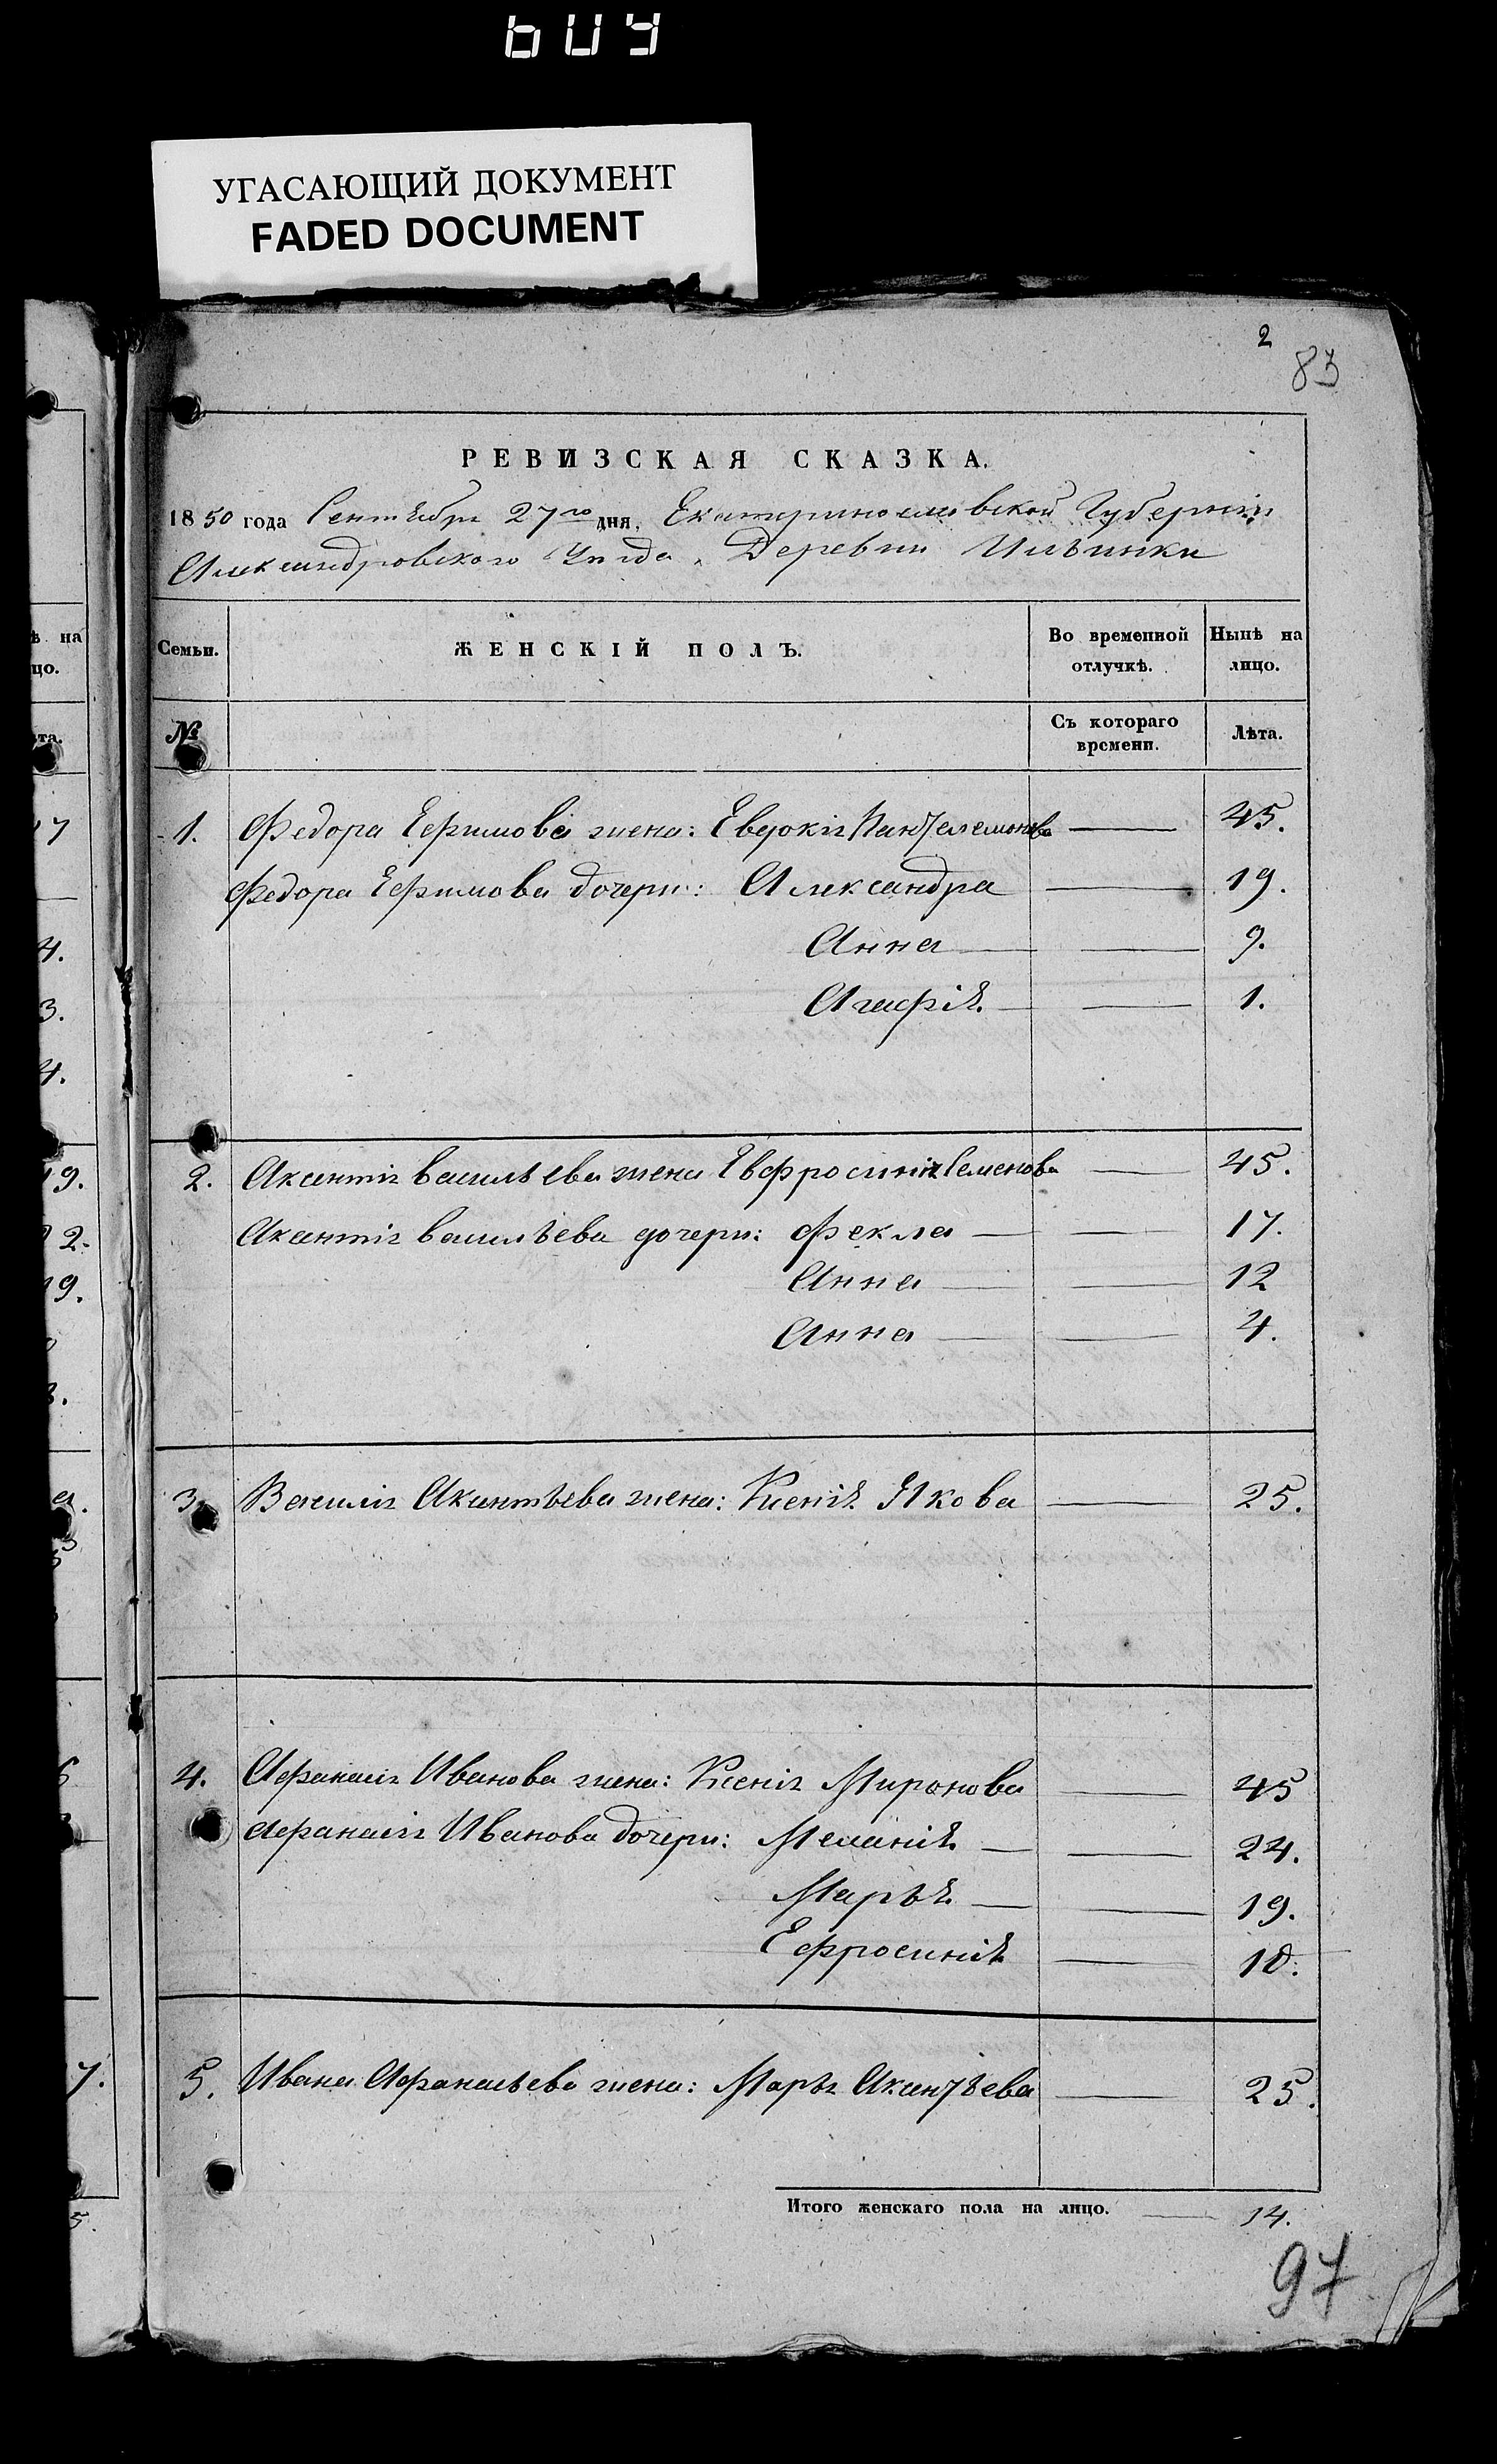 609
УГАСАЮЩИЙ ДОКУМЕНТ
FADED DOCUMENT
2
83
РЕВИЗСКАЯ СКАЗКА.
1850 года Сентября 27го дня. Екатеринославской Губерніи
Александровского Уѣзда. Деревни Ильинки
Семьи.
ЖЕНСКІЙ ПОЛЪ.
Во временной отлучкѣ.
Нынѣ на лицо.
№
Съ котораго времени.
Лѣта.
1. Федора Ефимова жена: Евдокія Пантелемонова — 45.
Федора Ефимова дочери: Александра — 19.
Анна — 9.
Агафія — 1.
2. Аксентія Васильева жена Евфросинія Семенова — 45.
Аксентія Васильева дочери: Фекла — 17.
Анна — 12
Анна — 4.
3. Василія Аксентьева жена: Ксенія Якова — 25.
4. Афанасія Иванова жена: Ксенія Миронова — 45
Афанасія Иванова дочери: Меланія — 24.
Марья — 19.
Ефросинія — 10.
5. Ивана Афанасьева жена: Марья Аксентьева — 25.
Итого женскаго пола на лицо. — 14.
97